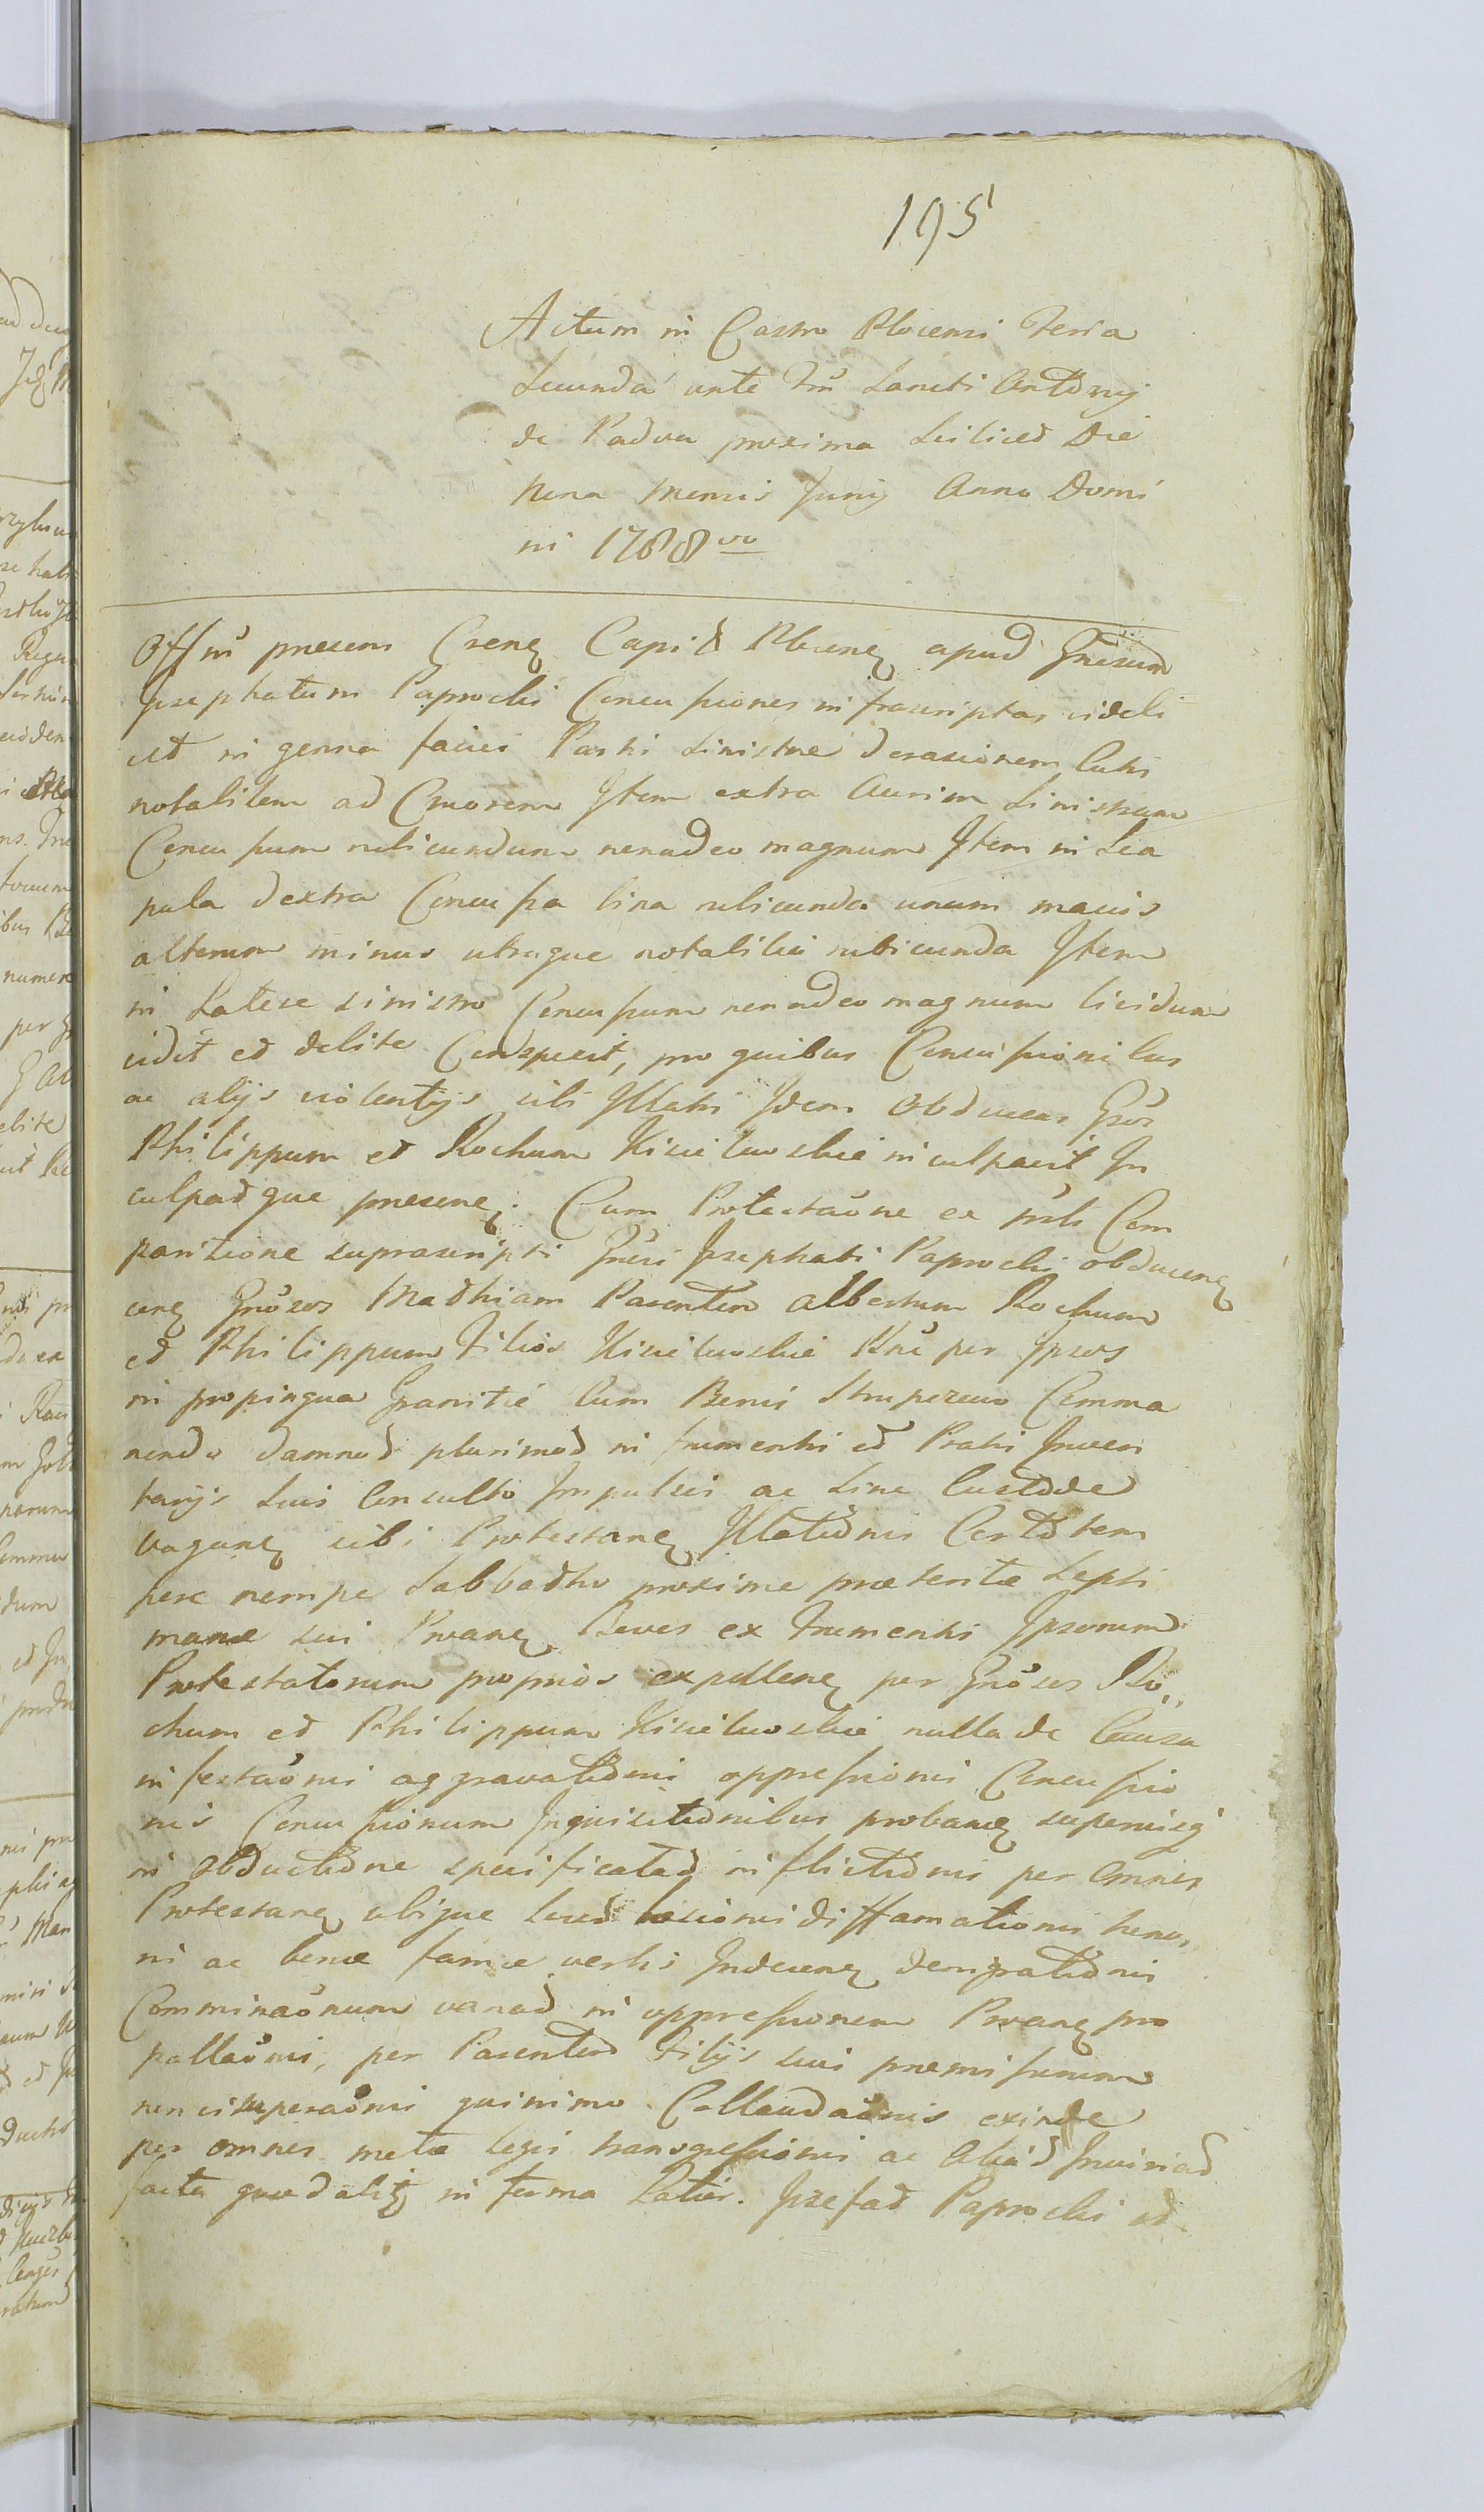 195
Actum in Castro Plocensi Feria
Secunda ante Ftũ Sancti Antonij
de Padua proxima scilicet Die
Nona Mensis Junij Anno Domi
ni 1788vo
Offm̃ presens Crens Capit Plocens apud Gnrsum
Josephatum Paprocki Concussiones infrascriptas videli
cet in genna faciei Parti sinistræ derasionem Cutis
notabilem ad Cruorem Item extra Aurim Sinistram
Concussum rubicundum nonadeo magnum Item in Sca
pula dextra Concussa bina rubicunda unum maius
alterum minus utraque notabilia rubicunda Item
in Latere sinistro Concussum nonadeo magnum lividum
vidit et debite Conspexit, pro quibus Concussionibus
ac alijs violentijs sibi Illatis Idem Obducens Gños
Philippum et Rochum Kisielewskie inculpavit In
culpatque presens. Cum Protestaõne ex prsli Com
paritione suprascripti Gnrsi Josephati Paprocki obducens
cens Gnõsos Mathiam Parentem Albertum Rochum
et Philippum Filios Kisielewskie Pñe per Ipsos
in propinqua Granitie cum Bonis Strupczewo Comma
nendo damnod plurimod in frumentis et Pratis Inven
tarijs Suis Consulto Impulsis ac Sine Custode
vagans sibi Protestans Illationis Certotem
pere nempe Sabbatho proxime præteritæ Septi
manæ sui Prvans Boves ex Frumentis Ipsorum
Protestatorum proprios expellens per Gnõsos Ro„
chum et Philippum Kisielewskie nulla de Causa
infestaõnis aggravationis oppressionis Concussio
nis Concussionum Inquisitionibus probans superiusq
in Obductione specificatad inflictionis per omnes
Protestans ubique locod læsionis diffamationis hono„
ris ac bonæ famæ verbis Indecens denigrationis
Comminaõnum variad in oppressionem Prvans pro
pallaõnis, per Parentem Filijs suis premissorum
non vituperaõnis quinimo Collaudaõnis exinde
per omnes metæ legis transgressionis ac Aliad Iniuriad
facta quod alitq in forma Latiss. Jozefat Paprocki et